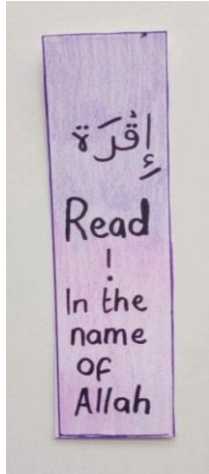 إِقْرَة
Read
!
In the
name
of
Allah